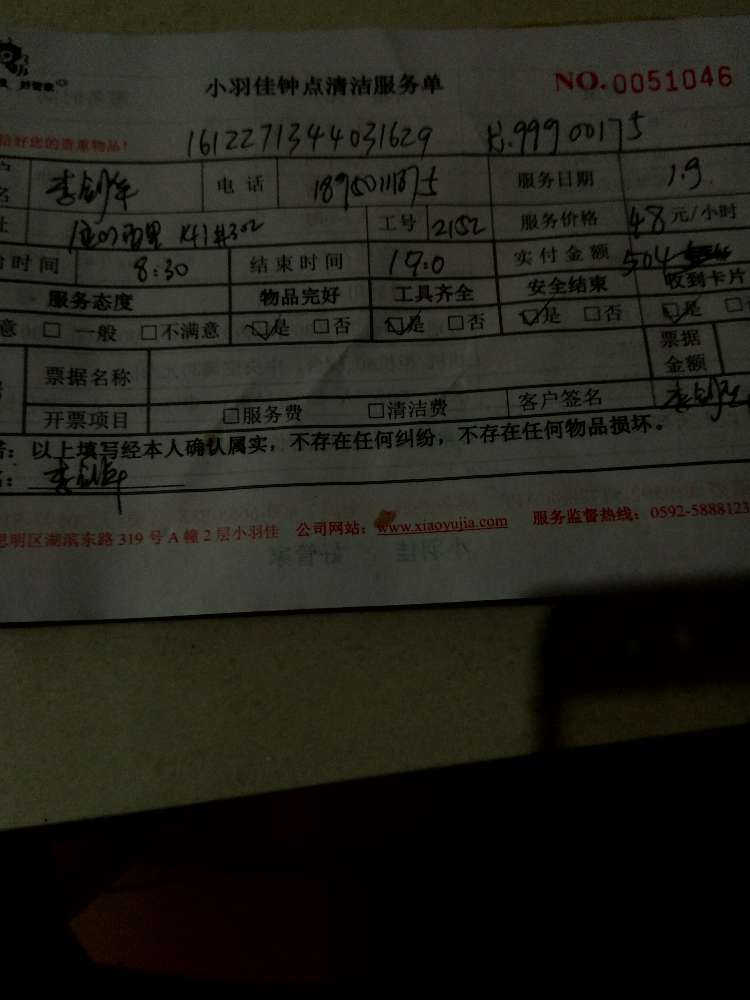 好管家
小羽佳钟点清洁服务单 NO.0051046
恰好您的贵重物品!
1612271344031629 99900175
名 电话 服务日期 1.9
址 工号 2152 服务价格 48 元/小时
时间 8:30 结束时间 19:0 实付金额 504
服务态度 物品完好 工具齐全 安全结束 收到卡片
意 □ 一般 □不满意 □是 □否 □是 □否 □是 □否 □是
票据名称 票据金额
开票项目 □服务费 □清洁费 客户签名
: 以上填写经本人确认属实，不存在任何纠纷，不存在任何物品损坏。
思明区湖滨东路319号A幢2层小羽佳 公司网站: www.xiaoyujia.com 服务监督热线: 0592-5888123